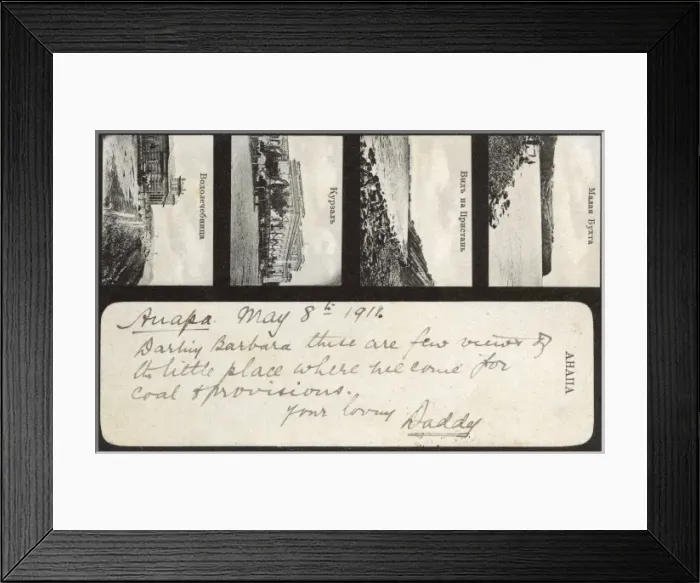 Водолечебница
Курзалъ
Видъ на Пристань
Малая Бухта
Anapa. May 8th 1911.
Darling Barbara these are few views of
the little place where we come for
coal & provisions.
Your loving Daddy
АНАПА